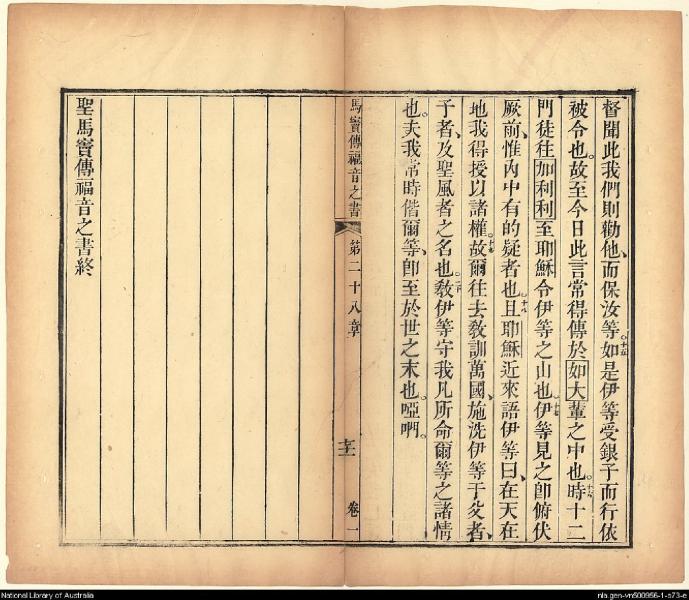 督聞此我們則勸他、而保汝等。○十五如是伊等受銀子而行依
被令也。故至今日此言常得傳於如大輩之中也。○十六時十二
門徒往加利利至耶穌令伊等之山也。○十七伊等見之卽俯伏
厥前、惟內中有的疑者也。○十八且耶穌近來語伊等曰、在天在
地我得授以諸權。○十九故爾往去敎訓萬國、施洗伊等于父者、
子者、及聖風者之名也。○二十敎伊等守我凡所命爾等之諸情
也。夫我常時偕爾等、卽至於世之末也。啞㗎。
馬竇傳福音之書 第二十八章 卷一
聖馬竇傳福音之書終
National Library of Australia
nla.gen-vn500956-1-s73-e